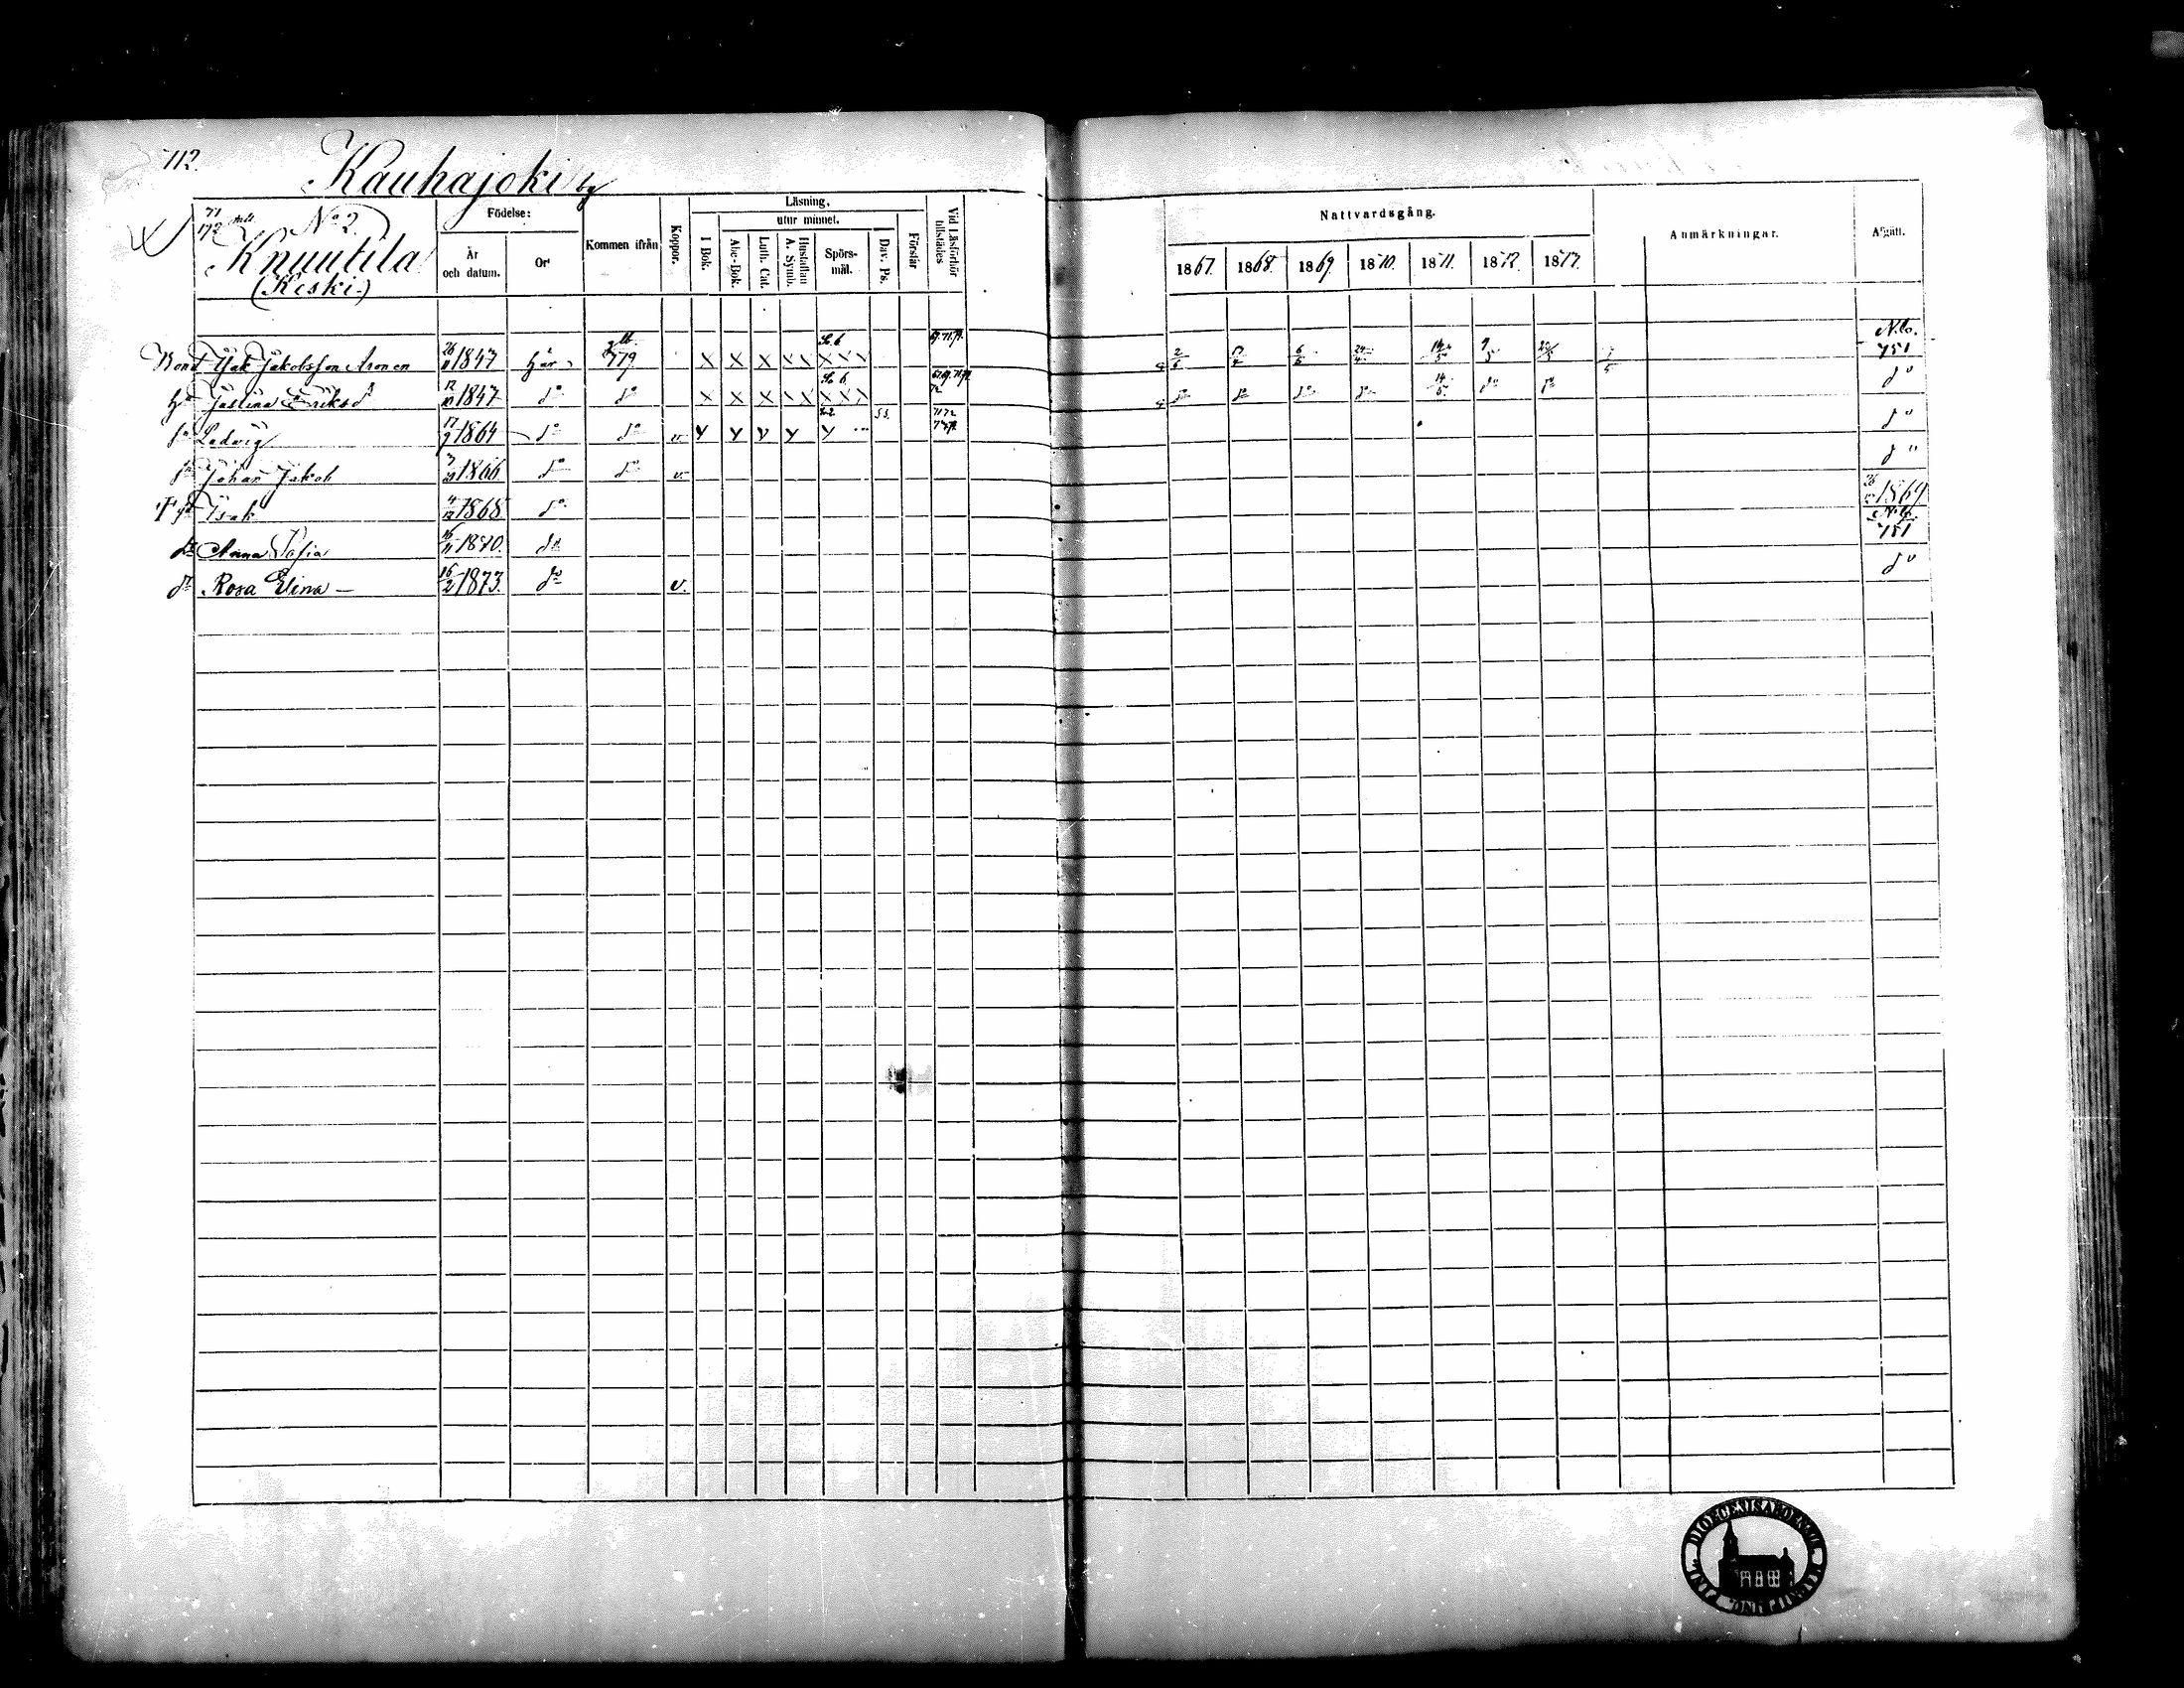 112.
Kauhajoki by
71/172 mtl. No 2.
Knuutila
(Keski-)
Födelse: År och datum. Ort Kommen ifrån Koppor. Läsning. I Bok. utur minnet. Abc-Bok. Luth. Cat. Hustaflan A. Symb. Spörsmål. Dav. Ps. Förstår Vid Läsförhör tillstädes Nattvardsgång. 1867. 1868. 1869. 1870. 1871. 1872. 1873. Anmärkningar. Afgått.
Bond Isak Jakobsson Aronen 1847 här 779. X X X X X X X X 2/5 6/6 N.b. 751
hu Justina Eriksd 12/10 1847 do do X X X X X X X X do do do do 14/5 do do do
sn Ludvig 17/9 1864 do do v. Y Y Y Y Y 71 72 do
sn Johan Jakob 1866 do do v. do
† sn Isak 4/12 1868 do 1869
dr Anna Sofia 16/11 1870. do N.b. 751
dr Rosa Elina 16/2 1873. do v. do